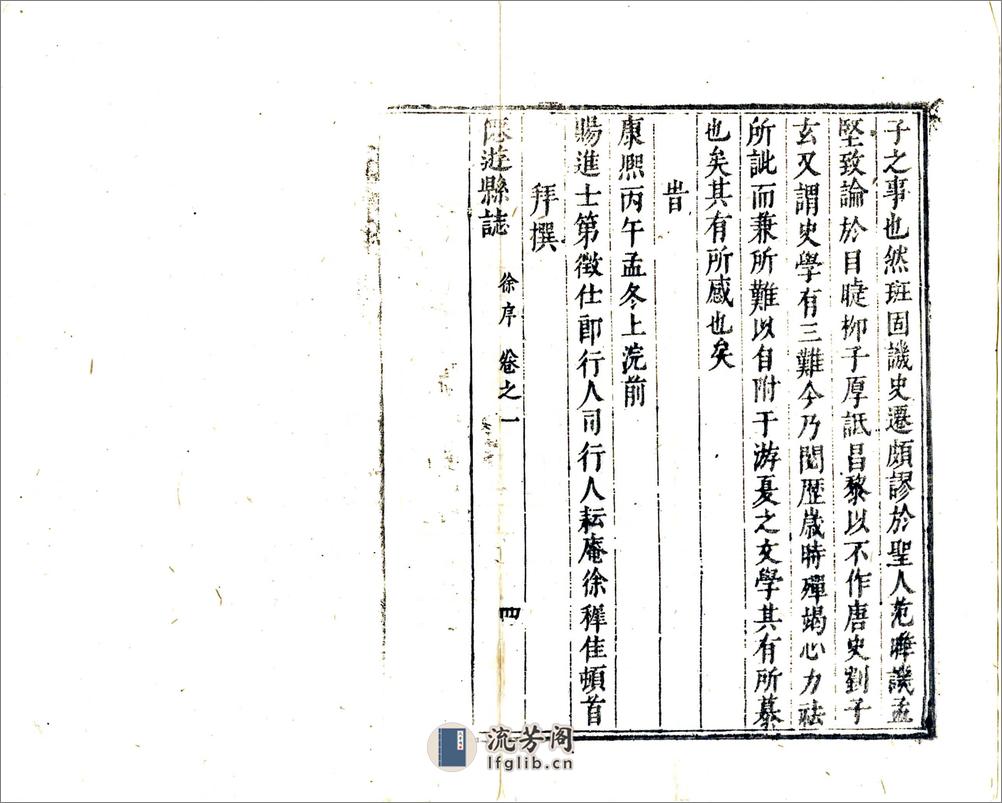 子之事也然班固譏史遷頗謬於聖人范曄譏孟
堅致論於目睫柳子厚詆昌黎以不作唐史劉子
玄又謂史學有三難今乃閱歷歲時殫竭心力祛
所訿而兼所難以自附于游夏之文學其有所慕
也矣其有所感也矣
旹
康熙丙午孟冬上浣前
賜進士第徵仕郎行人司行人耘庵徐穉佳頓首
拜撰
僊遊縣誌 徐序 卷之一 四
流芳阁
lfglib.cn